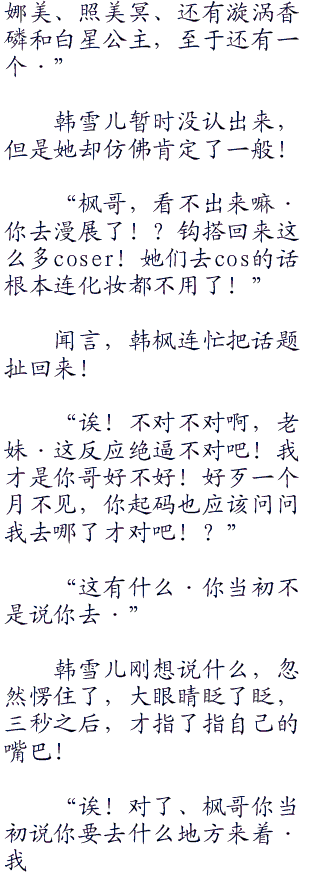 娜美、照美冥、还有漩涡香
磷和白星公主，至于还有一
个·”
韩雪儿暂时没认出来，
但是她却仿佛肯定了一般！
“枫哥，看不出来嘛·
你去漫展了！？钩搭回来这
么多coser！她们去cos的话
根本连化妆都不用了！”
闻言，韩枫连忙把话题
扯回来！
“诶！不对不对啊，老
妹·这反应绝逼不对吧！我
才是你哥好不好！好歹一个
月不见，你起码也应该问问
我去哪了才对吧！？”
“这有什么·你当初不
是说你去·”
韩雪儿刚想说什么，忽
然愣住了，大眼睛眨了眨，
三秒之后，才指了指自己的
嘴巴！
“诶！对了、枫哥你当
初说你要去什么地方来着·
我